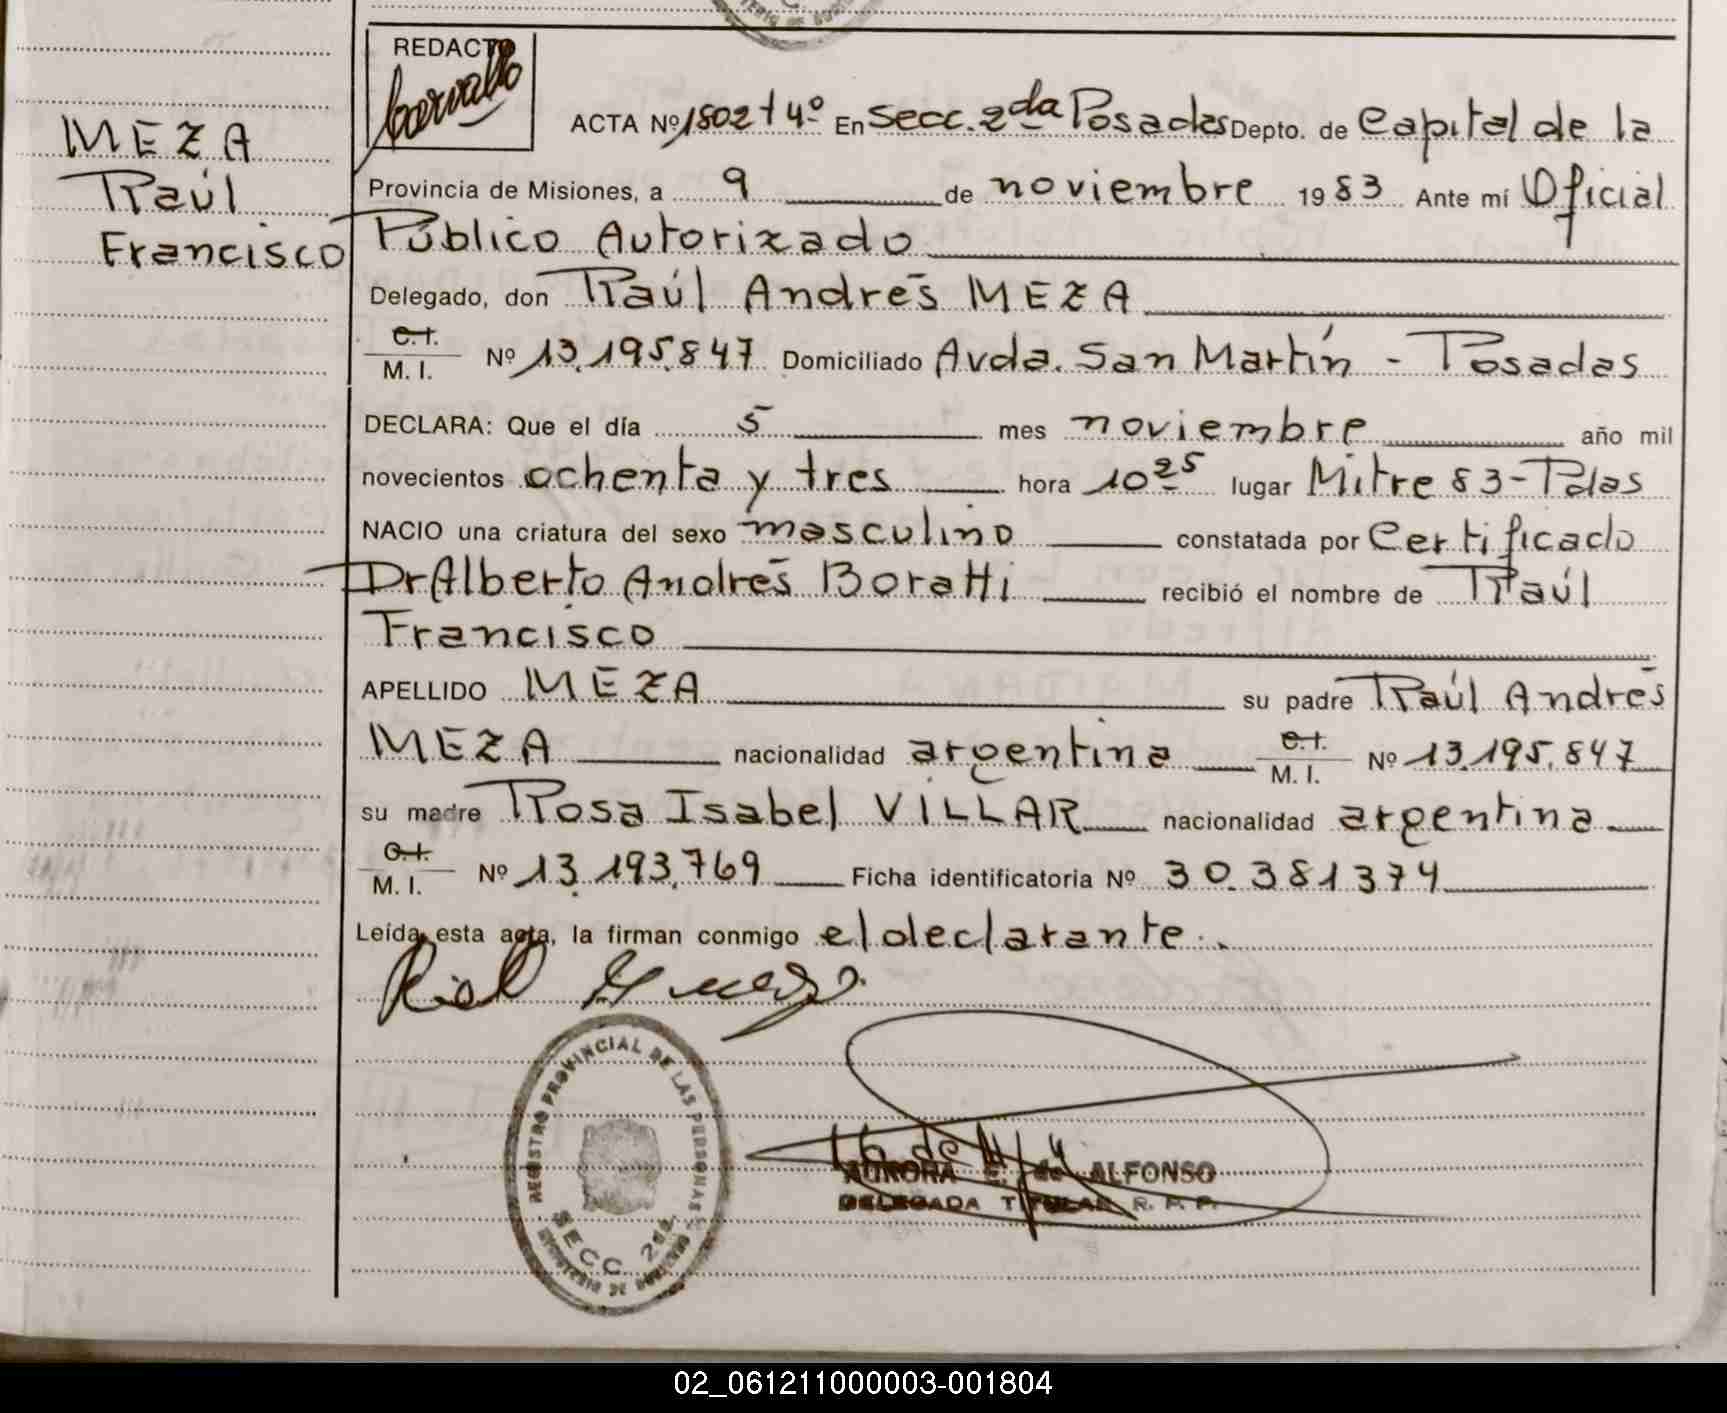 REDACTO
MEZA
Raúl
Francisco
ACTA Nº 1802 t 4º En Secc. 2da Posadas Depto. de Capital de la
Provincia de Misiones, a 9 de noviembre 1983 Ante mí Oficial
Público Autorizado
Delegado, don Raúl Andrés MEZA
C.I.
M. I. Nº 13.195.847 Domiciliado Avda. San Martín - Posadas
DECLARA: Que el día 5 mes noviembre año mil
novecientos ochenta y tres hora 10 25 lugar Mitre 83-Pdas
NACIO una criatura del sexo masculino constatada por Certificado
Dr Alberto Andrés Boratti recibió el nombre de Raúl
Francisco
APELLIDO MEZA su padre Raúl Andrés
MEZA nacionalidad argentina C.I. M. I. Nº 13.195.847
su madre Rosa Isabel VILLAR nacionalidad argentina
C.I.
M. I. Nº 13.193.769 Ficha identificatoria Nº 30.381374
Leída esta acta, la firman conmigo el declarante.
REGISTRO PROVINCIAL DE LAS PERSONAS
SECC. 2da.
AURORA E. de ALFONSO
DELEGADA TITULAR R. P. P.
02_061211000003-001804